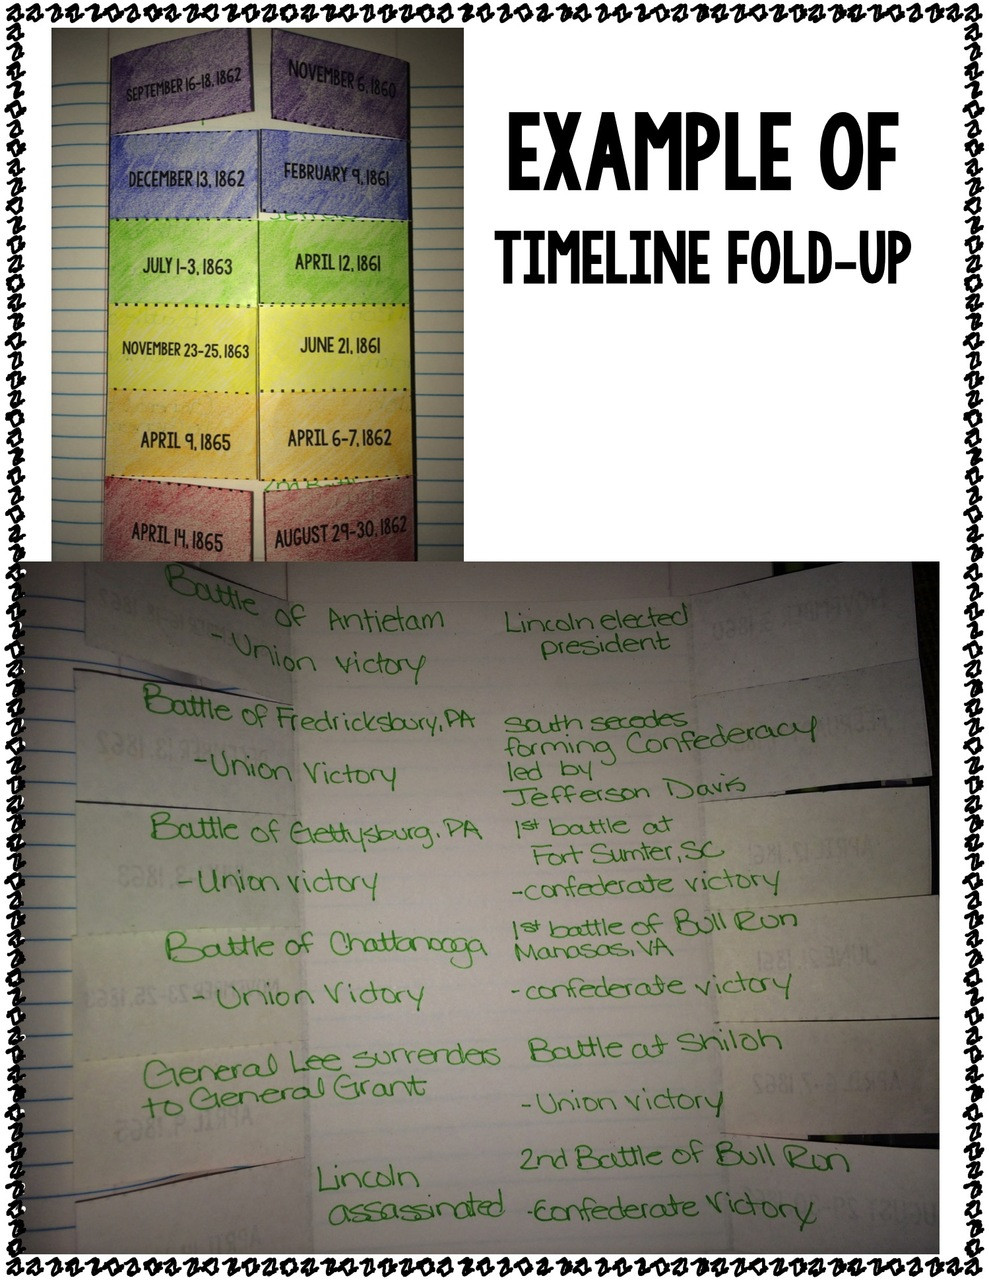 SEPTEMBER 16-18, 1862
NOVEMBER 6, 1860
DECEMBER 13, 1862
FEBRUARY 9, 1861
JULY 1-3, 1863
APRIL 12, 1861
NOVEMBER 23-25, 1863
JUNE 21, 1861
APRIL 9, 1865
APRIL 6-7, 1862
APRIL 14, 1865
AUGUST 29-30, 1862
EXAMPLE OF
TIMELINE FOLD-UP
Battle of Antietam
- Union victory
Battle of Fredricksbury, PA
- Union Victory
Battle of Gettysburg, PA
- Union victory
Battle of Chattanooga
- Union Victory
General Lee surrenders
to General Grant
Lincoln
assassinated
Lincoln elected
president
South secedes
forming Confederacy
led by
Jefferson Davis
1st battle at
Fort Sumter, SC
- confederate victory
1st battle of Bull Run
Manasas, VA
- confederate victory
Battle at Shiloh
- Union victory
2nd Battle of Bull Run
- Confederate Victory